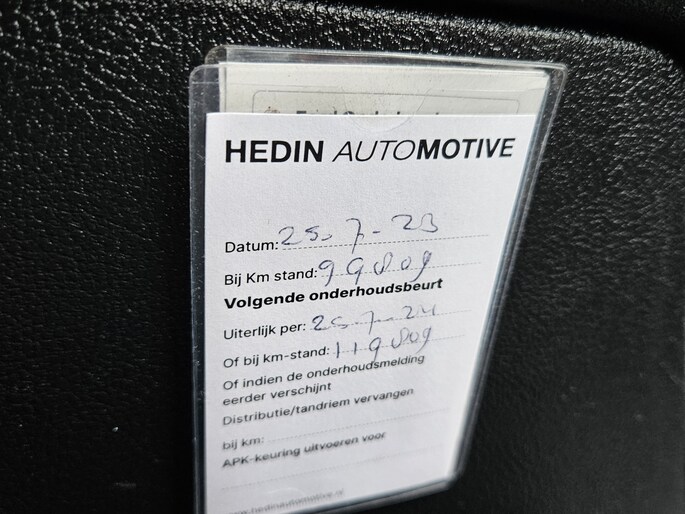 HEDIN AUTOMOTIVE
Datum: 25-7-23
Bij Km stand: 99809
Volgende onderhoudsbeurt
Uiterlijk per: 25-7-24
Of bij km-stand: 119809
Of indien de onderhoudsmelding
eerder verschijnt
Distributie/tandriem vervangen
bij km:
APK-keuring uitvoeren voor
www.hedinautomotive.nl